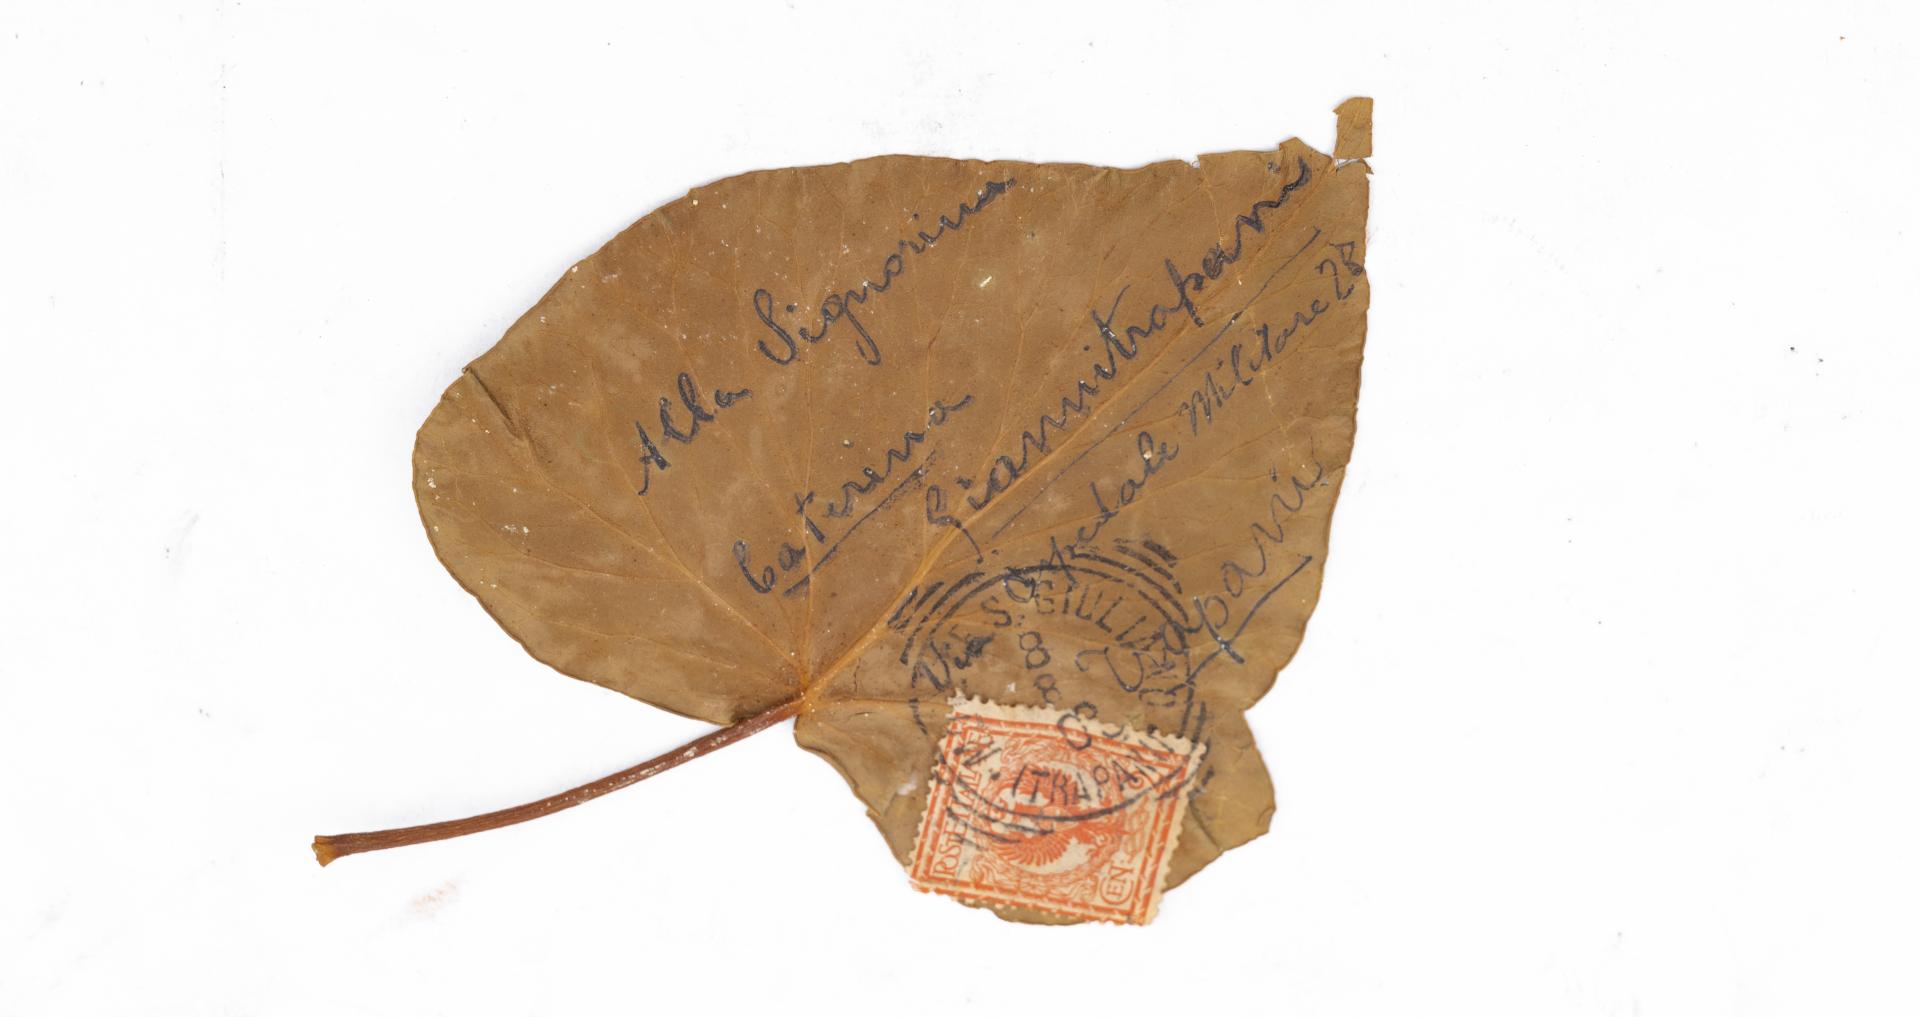 Alla Signorina
Caterina Giannitrapani
Via Ospedale Militare 28
Trapani
S. GIULIANO
8
8
03
(TRAPANI)
POSTE ITALIANE
CEN. 2